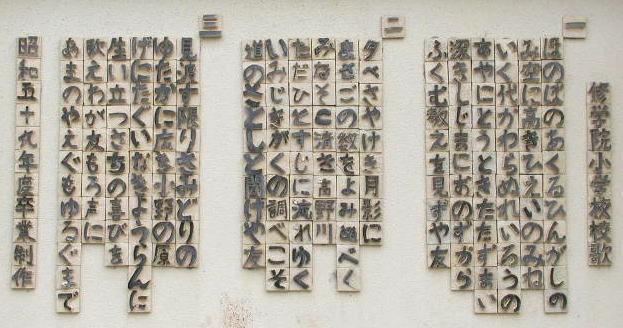 修学院小学校校歌
一
ほのぼのあくるひんがしの
み空に高きひえいのみね
いく代かわらぬれいろうの
あやにとうときたたずまい
深きしじまにおのずから
ふくむ教えを見ずや友
二
夕べさやけき月影に
まさごの数をよみぬべく
みなそこ清き高野川
ただひとすじに流れゆく
いみじきがくの調べこそ
道のさとしと聞けや友
三
見渡す限りさみどりの
ゆたかに広き小野の原
げにたぐいなきようらんに
生い立つさちの喜びを
歌えわが友もろ声に
あまのやえぐもゆるぐまで
昭和五十九年度卒業制作